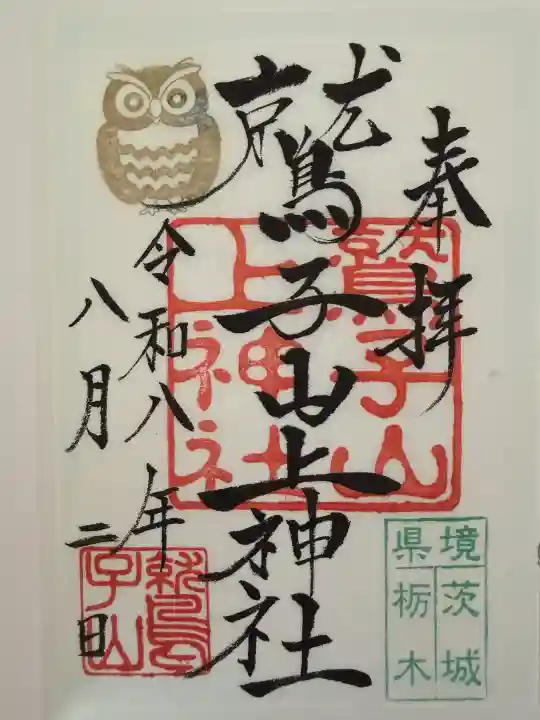 奉拝
鷲子山上神社
令和八年
八月二日
鷲子山
上神社
鷲子山
境
県
茨城
栃木